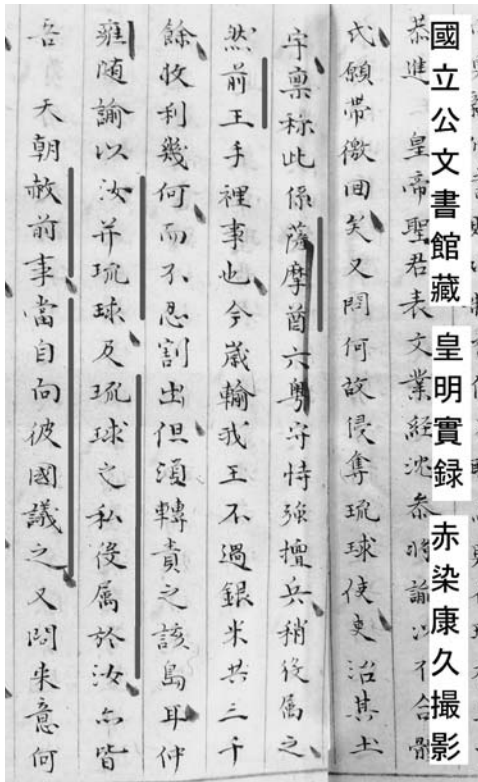 國立公文書館藏 皇明實録 赤染康久撮影
恭進 皇帝聖君表文業經沈參將諭以不合體
氏願帶繳回矣又問何故侵奪琉球使吏治其土
宇稟称此係薩摩酋六粤守恃強擅兵稍役属之
然前王手裡事也今歲輸我王不過銀米共三千
餘收利幾何而不忍割出但湏轉責之該島耳仲
雍随諭以汝并琉球及琉球之私役属於汝亦皆
吾 天朝赦前事當自向彼國議之又問来意何